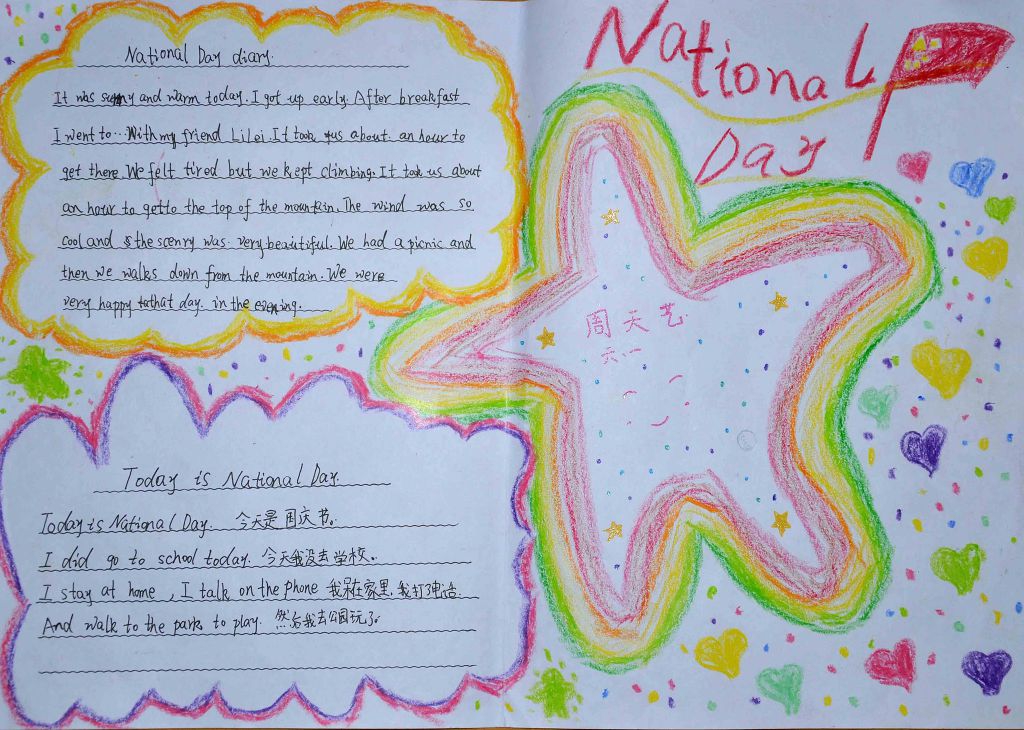 National Day diary.
It was sunny and warm today. I got up early. After breakfast
I went to... With my friend LiLei. It took us about an hour to
get there. We felt tired but we kept climbing. It took us about
an hour to getto the top of the mountain. The wind was so
cool and the scenry was very beautiful. We had a picnic and
then we walks down from the mountain. We were
very happy tothat day in the evening.
National
Day
周天艺
六一
Today is National Day
Today is National Day. 今天是国庆节。
I did go to school today. 今天我没去学校。
I stay at home, I talk on the phone 我呆在家里,我打了电话
And walk to the park to play. 然后我去公园玩了。